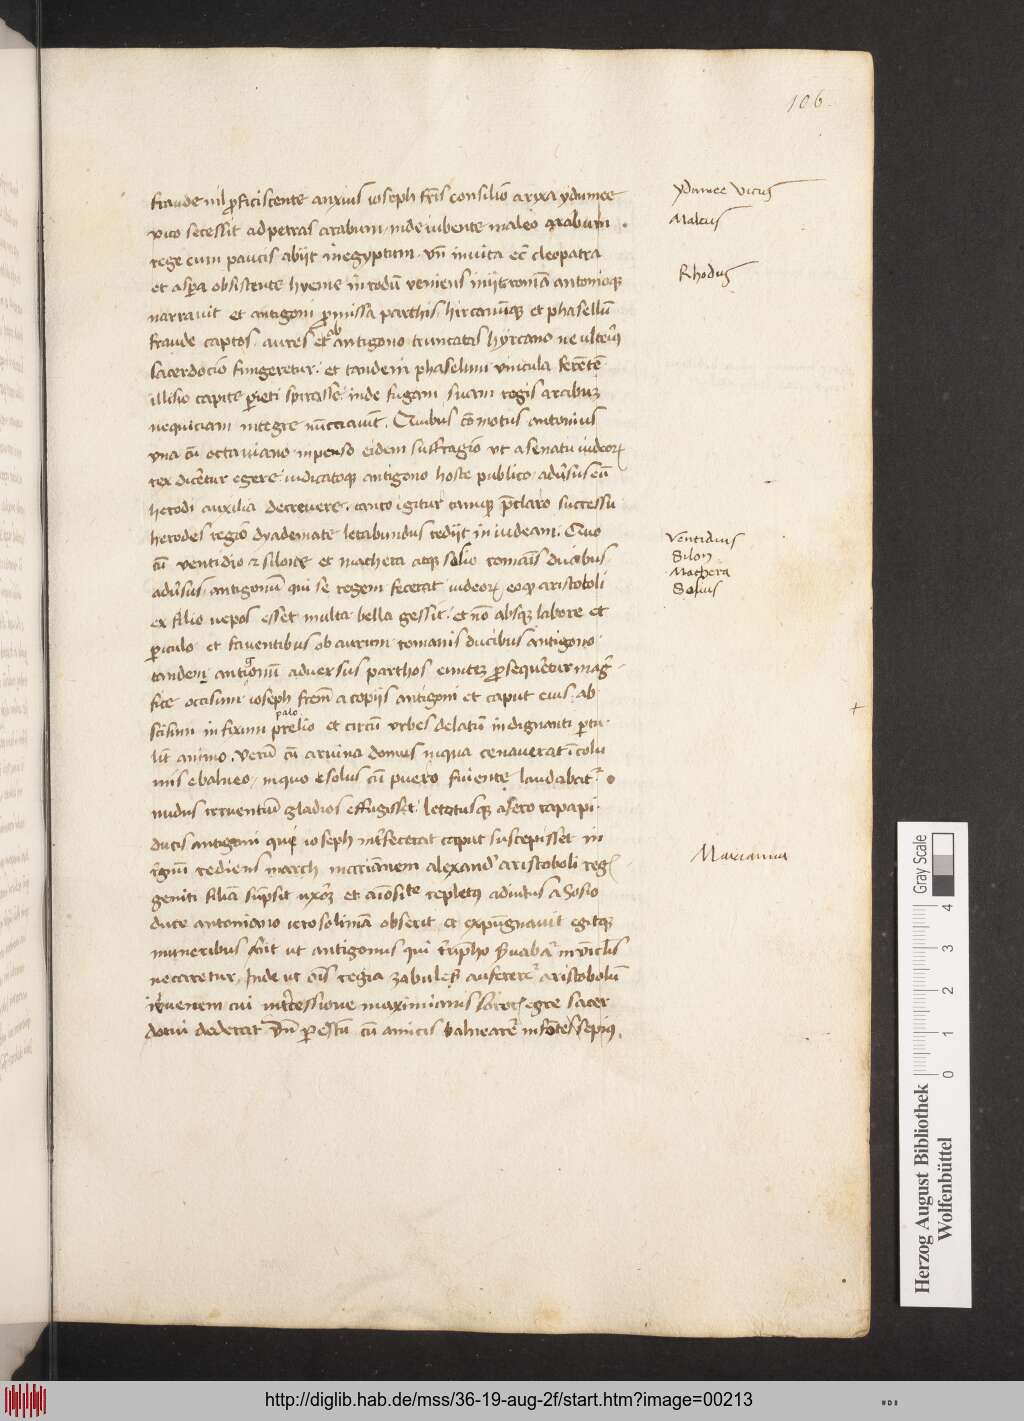 106
fraude nil proficiscente anxius ioseph fr̄is consilio arxa ydumee
vico secessit ad petras arabum. inde iubente malco arabum
rege cum paucis abijt in egyptum. vn̄ inuita ec̄ cleopatra
et asp̄a obsistente hyeme in rodū veniens inijt romā antonioqꝫ
narrauit et antigoni p̄missa parthis. hircanūqꝫ et phasellū
fraude captos. aures et ab antigono truncatas hyrcano ne vlteriꝰ
sacerdocio fungeretur. et tandem phaselum vincula ferētē
illiso capite parieti spirasse. inde fugam suam regis arabuꝫ
nequiciam integre nūcciauit. Quibus cōmotus antonius
vna cū octauiano inpenso eidem suffragio vt a senatu iudeoꝝ
rex diceretur egere. iudicatoqꝫ antigono hoste publico. aduersus eū
herodi auxilia decreuere. tanto igitur tamqꝫ p̄claro successu
herodes regio dyademate letabundus redijt in iudeam. Quo
cū ventidio et silone et machera atqꝫ solio romanis ducibus
aduersus antigonū qui se regem fecerat iudeoꝝ eoqꝫ aristoboli
ex filio nepos esset multa bella gessit. et nō absqꝫ labore et
periculo et fauentibus ob aurum romanis ducibus antigono.
tandem antoniū aduersus parthos euntē prosequeretur magni
fice occisum ioseph frem̄ a copijs antigoni et caput eius ab
scisum infixum palo prelio et circū vrbes delatū indignanti pertu
lit animo. Verū cū a ruina domus in qua cenauerat icolu
mis e balneo, in quo solus cū puero fuiente laudabat
nudus irruentiū gladios effugisset. letatusqꝫ a fero rapapi
ducis antigoni que ioseph interfecerat caput suscepisset in
regnū rediens march mariānem alexandri aristoboli reg
geniti filiā sumpsit uxorē et repletus adiutus a Sosio
duce antoniano ierosolimā obsedit et expugnauit egitqꝫ
muneribus ut antigonus qui
necaretur. Inde ut regia aristobolū
iuuenem cui intercessione maximianus egre sacer
dotiū dederat Vn̄ cū amicis balneare in fontes sepius.
ydumee vicus
Malcus
Rhodus
Ventidius
Silon
Machera
Solius
Marianna
Gray Scale
0 1 2 3 4
Herzog August Bibliothek
Wolfenbüttel
http://diglib.hab.de/mss/36-19-aug-2f/start.htm?image=00213